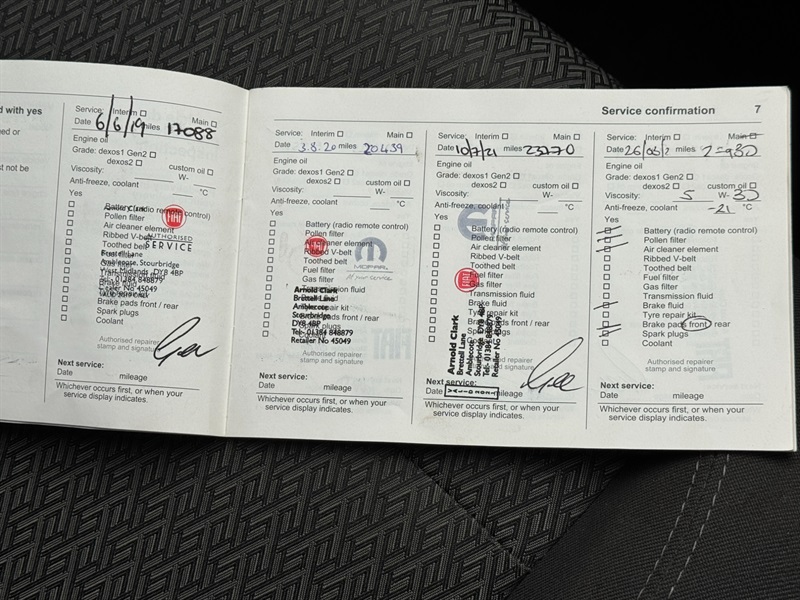 d with yes
ed or
st not be
Service: Interim Main
Date 6/6/19 miles 17088
Engine oil
Grade: dexos1 Gen2
dexos2 custom oil
Viscosity: W-
Anti-freeze, coolant °C
Yes
Battery (radio remote control)
Pollen filter
Air cleaner element
Ribbed V-belt
Toothed belt
Fuel filter
Gas filter
Brake fluid
Brake pads front / rear
Spark plugs
Coolant
FIAT
AUTHORISED
SERVICE
Arnold Clark
Brettell Lane
Amblecote, Stourbridge
West Midlands DY8 4BP
Tel: 01384 848879
Dealer No 45049
Authorised repairer
stamp and signature
Next service:
Date mileage
Whichever occurs first, or when your
service display indicates.
Service: Interim Main
Date 3.8.20 miles 20439
Engine oil
Grade: dexos1 Gen2
dexos2 custom oil
Viscosity: W-
Anti-freeze, coolant °C
Yes
Battery (radio remote control)
Pollen filter
Air cleaner element
Ribbed V-belt
Toothed belt
Fuel filter
Gas filter
Transmission fluid
Brake fluid
Brake pads front / rear
Spark plugs
Coolant
FIAT
MOPAR
Arnold Clark
Brettell Lane
Amblecote
Stourbridge
DY8 4BP
Tel: 01384 848879
Retailer No 45049
Authorised repairer
stamp and signature
Next service:
Date mileage
Whichever occurs first, or when your
service display indicates.
Service: Interim Main
Date 10/7/21 miles 23270
Engine oil
Grade: dexos1 Gen2
dexos2 custom oil
Viscosity: W-
Anti-freeze, coolant °C
Yes
Battery (radio remote control)
Pollen filter
Air cleaner element
Ribbed V-belt
Toothed belt
Fuel filter
Gas filter
Transmission fluid
Brake fluid
Brake pads front / rear
Spark plugs
service
FIAT
Arnold Clark
Brettell Lane
Amblecote
Stourbridge
Tel: 01384 848879
Retailer No 45049
Authorised repairer
stamp and signature
Next service:
Date mileage
Whichever occurs first, or when your
service display indicates.
Service confirmation 7
Service: Interim Main
Date miles
Engine oil
Grade: dexos1 Gen2
dexos2 custom oil
Viscosity: 5 W- 30
Anti-freeze, coolant -21 °C
Yes
Battery (radio remote control)
Pollen filter
Air cleaner element
Ribbed V-belt
Toothed belt
Fuel filter
Gas filter
Transmission fluid
Brake fluid
Tyre repair kit
Brake pads front / rear
Spark plugs
Coolant
Authorised repairer
stamp and signature
Next service:
Date mileage
Whichever occurs first, or when your
service display indicates.